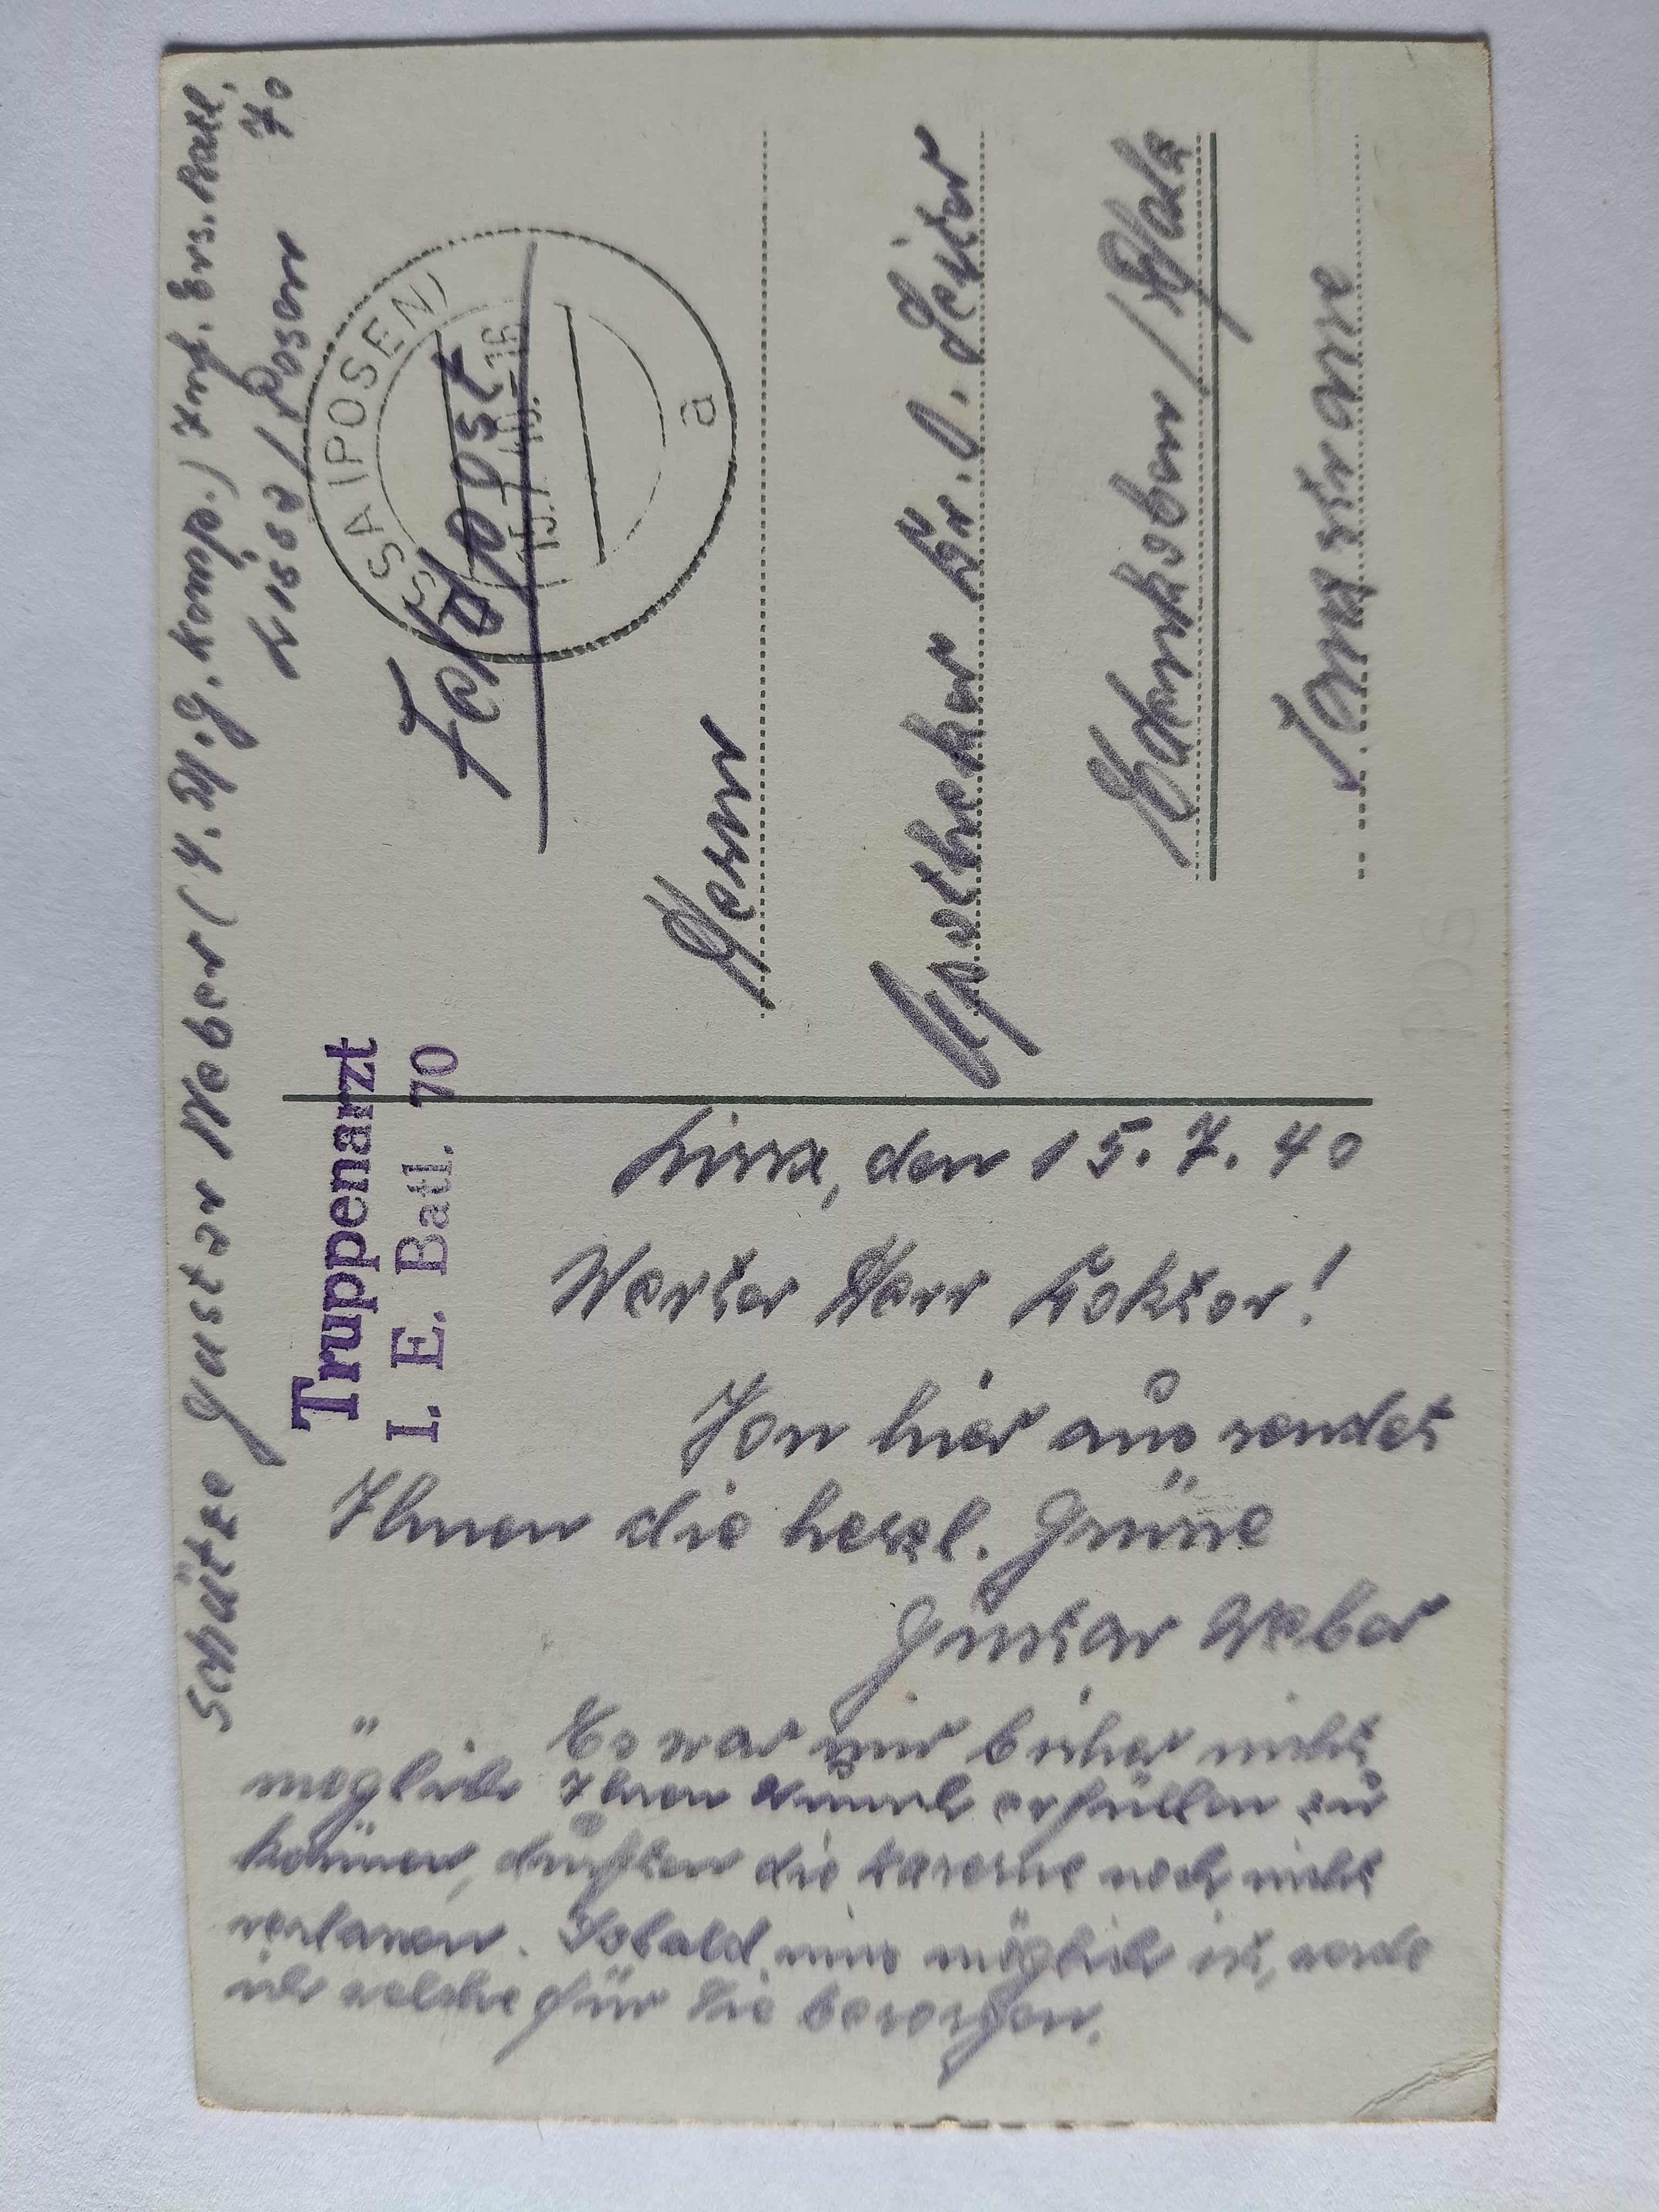 Schütze Gustav Weber (4. M.G. Komp.) Inf. Ers. Batl. 70
Lissa / Posen
Truppenarzt
I. E. Batl. 70
Feldpost
SSA (POSEN)
15.7.40.-16
a
Herrn
Apotheker Dr. O.
Edenkoben / Pfalz
Lissa, den 15. 7. 40
Werter Herr Doktor!
Von hier aus sendet
Ihnen die herzl. Grüsse
Gustav Weber
Es war mir bisher nicht
möglich Ihren Wunsch erfüllen zu
können, durften die Kaserne noch nicht
verlassen. Sobald mirs möglich ist, werde
ich welche für Sie besorgen.